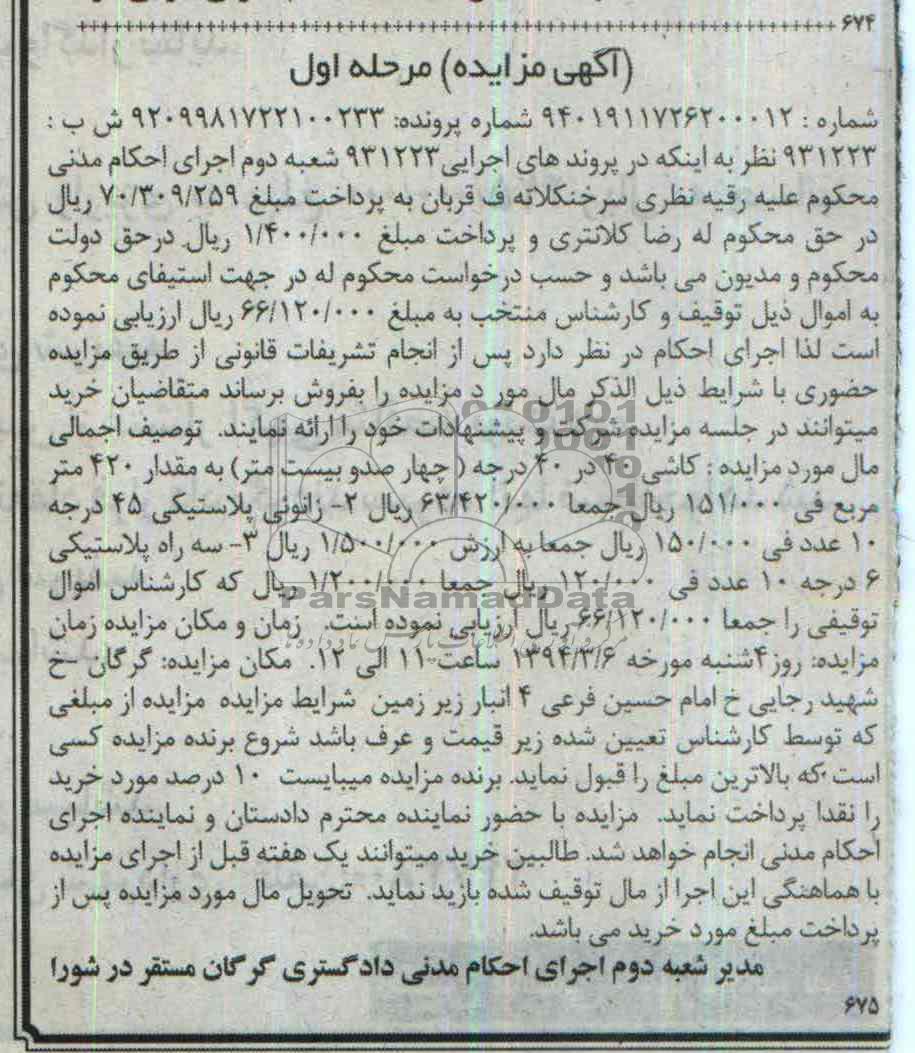 ۶۷۴
(آگهی مزایده) مرحله اول
شماره : ۹۴۰۱۹۱۱۷۲۶۲۰۰۰۱۲ شماره پرونده: ۹۲۰۹۹۸۱۷۲۲۱۰۰۲۳۳ ش ب :
۹۳۱۲۲۳ نظر به اینکه در پروند های اجرایی۹۳۱۲۲۳ شعبه دوم اجرای احکام مدنی
محکوم علیه رقیه نظری سرخنکلاته ف قربان به پرداخت مبلغ ۷۰/۳۰۹/۲۵۹ ریال
در حق محکوم له رضا کلانتری و پرداخت مبلغ ۱/۴۰۰/۰۰۰ ریال درحق دولت
محکوم و مدیون می باشد و حسب درخواست محکوم له در جهت استیفای محکوم
به اموال ذیل توقیف و کارشناس منتخب به مبلغ ۶۶/۱۲۰/۰۰۰ ریال ارزیابی نموده
است لذا اجرای احکام در نظر دارد پس از انجام تشریفات قانونی از طریق مزایده
حضوری با شرایط ذیل الذکر مال مور د مزایده را بفروش برساند متقاضیان خرید
میتوانند در جلسه مزایده شرکت و پیشنهادات خود را ارائه نمایند. توصیف اجمالی
مال مورد مزایده : کاشی ۴۰ در ۴۰ درجه ( چهار صدو بیست متر) به مقدار ۴۲۰ متر
مربع فی ۱۵۱/۰۰۰ ریال جمعا ۶۳/۴۲۰/۰۰۰ ریال ۲- زانوئی پلاستیکی ۴۵ درجه
۱۰ عدد فی ۱۵۰/۰۰۰ ریال جمعا به ارزش ۱/۵۰۰/۰۰۰ ریال ۳- سه راه پلاستیکی
۶ درجه ۱۰ عدد فی ۱۲۰/۰۰۰ ریال جمعا ۱/۲۰۰/۰۰۰ ریال که کارشناس اموال
ParsNamadData
توقیفی را جمعا ۶۶/۱۲۰/۰۰۰ ریال ارزیابی نموده است. زمان و مکان مزایده زمان
مزایده: روز۴شنبه مورخه ۱۳۹۴/۳/۶ ساعت ۱۱ الی ۱۲. مکان مزایده: گرگان -خ
شهید رجایی خ امام حسین فرعی ۴ انبار زیر زمین شرایط مزایده مزایده از مبلغی
که توسط کارشناس تعیین شده زیر قیمت و عرف باشد شروع برنده مزایده کسی
است که بالاترین مبلغ را قبول نماید. برنده مزایده میبایست ۱۰ درصد مورد خرید
را نقدا پرداخت نماید. مزایده با حضور نماینده محترم دادستان و نماینده اجرای
احکام مدنی انجام خواهد شد. طالبین خرید میتوانند یک هفته قبل از اجرای مزایده
با هماهنگی این اجرا از مال توقیف شده بازید نماید. تحویل مال مورد مزایده پس از
پرداخت مبلغ مورد خرید می باشد.
مدیر شعبه دوم اجرای احکام مدنی دادگستری گرگان مستقر در شورا
۶۷۵